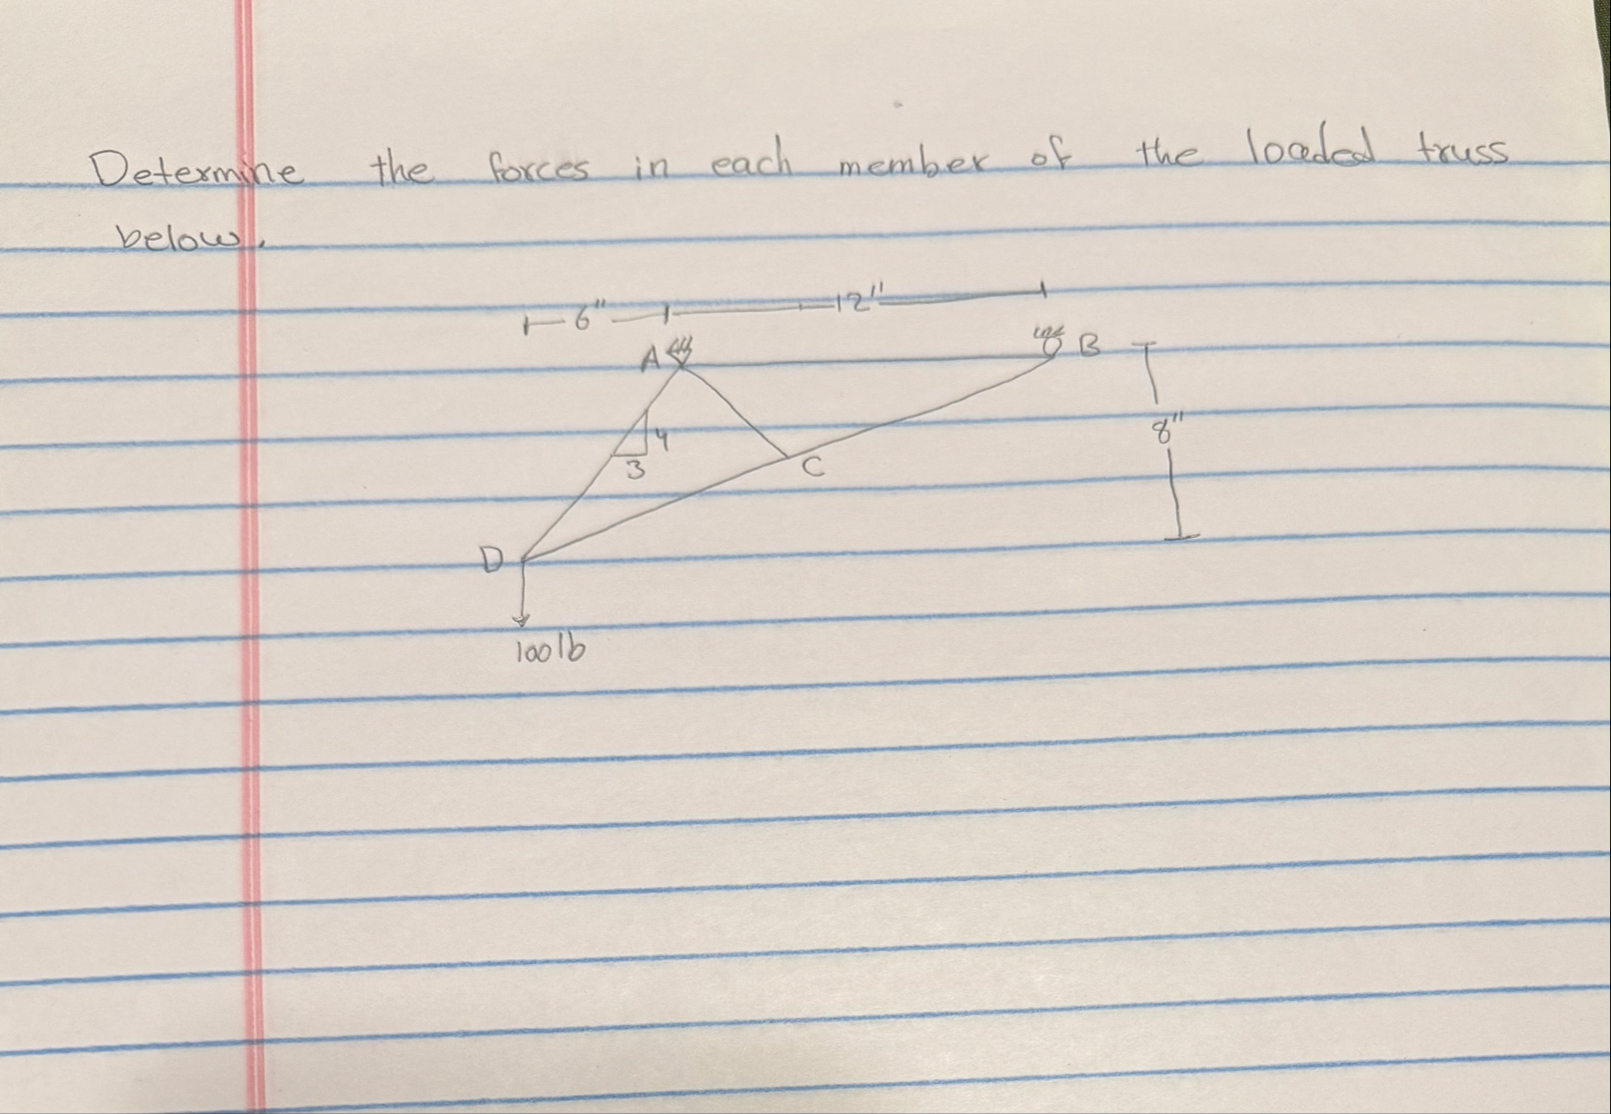 Determine the forces in each member of the loaded truss
below.
6" 12"
A B
4 8"
3 C
D
100lb